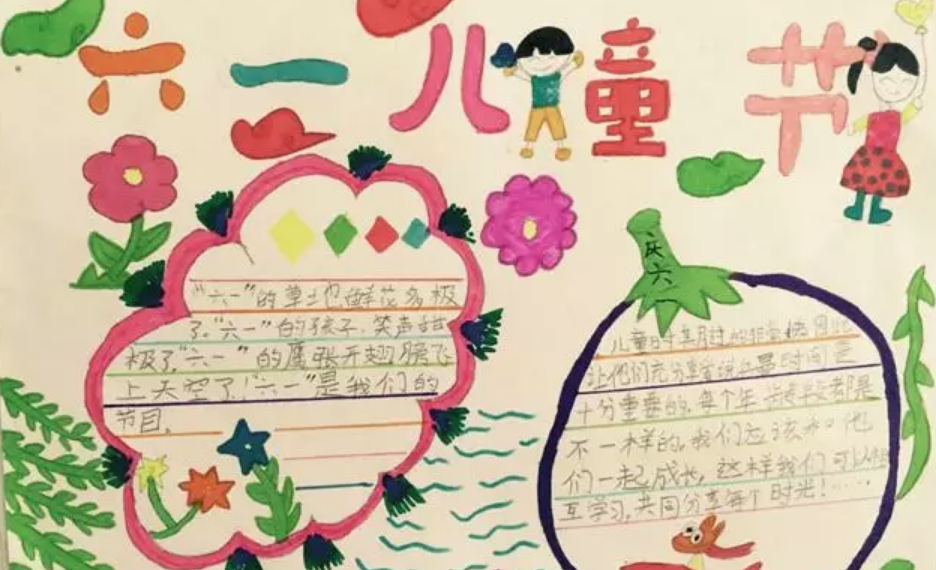 六一儿童节
"六一"的草地鲜花多极
了。"六一"的孩子,笑声甜
极了"六一"的鹰张开翅膀飞
上天空了!"六一"是我们的
节目。
庆六一
儿童时其月过的非常快
让他们充分享 时间是
十分重要的,每个年 都是
不一样的。我们应该和他
们一起成长,这样我们可以相
互学习,共同分享每个时光!……